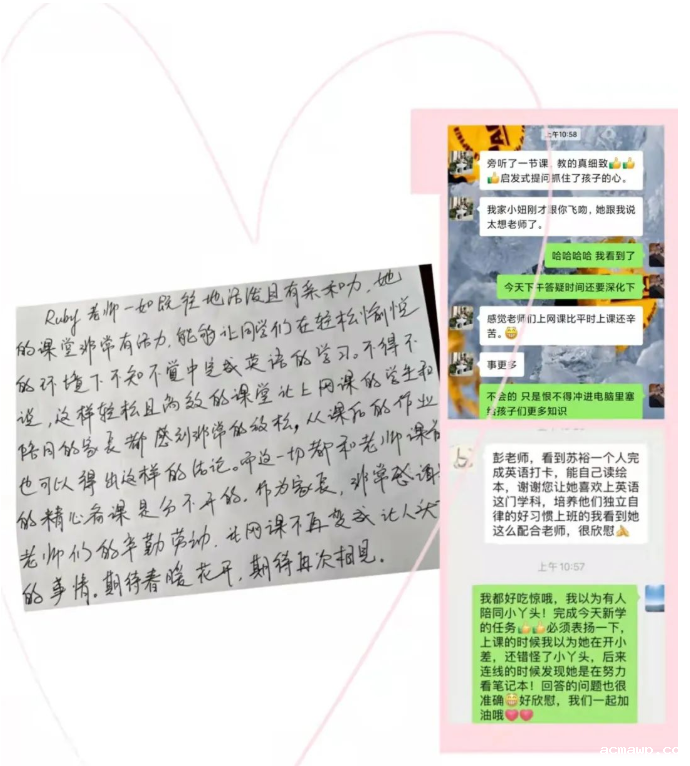 Ruby 老师一如既往地活泼且有亲和力,她
的课堂非常有活力,能够让同学们在轻松愉悦
的环境下不知不觉中完成英语的学习。不得不
说,这样轻松且高效的课堂让上网课的学生和
陪同的家长都感到非常的放松,从课后的作业
也可以得出这样的结论。而这一切都和老师课前
的精心备课是分不开的。作为家长,非常感谢
老师们的辛勤劳动,让网课不再变成让人头
的事情。期待春暖花开,期待再次相见。
上午10:58
旁听了一节课,教的真细致👍👍
👍启发式提问抓住了孩子的心。
我家小妞刚才跟你飞吻,她跟我说
太想老师了。
哈哈哈哈 我看到了
今天下午答疑时间还要深化下
感觉老师们上网课比平时上课还辛
苦。😁
事更多
不会的 只是恨不得冲进电脑里塞
给孩子们更多知识
彭老师,看到苏裕一个人完
成英语打卡,能自己读绘
本,谢谢您让她喜欢上英语
这门学科,培养他们独立自
律的好习惯上班的我看到她
这么配合老师,很欣慰🙏
上午10:57
我都好吃惊哦,我以为有人
陪同小丫头!完成今天新学
的任务👍👍必须表扬一下,
上课的时候我以为她在开小
差,还错怪了小丫头,后来
连线的时候发现她是在努力
看笔记本!回答的问题也很
准确😁好欣慰,我们一起加
油哦❤❤
acmawp.com